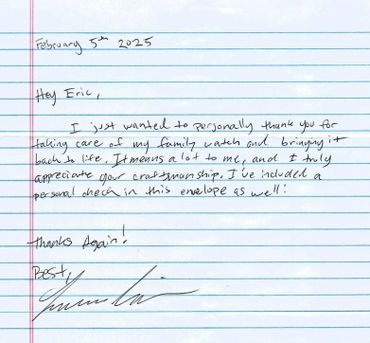 February 5th 2025
Hey Eric,
I just wanted to personally thank you for
taking care of my family watch and bringing it
back to life. It means a lot to me, and I truly
appreciate your craftsmanship. I've included a
personal check in this envelope as well!
Thanks Again!
Best,